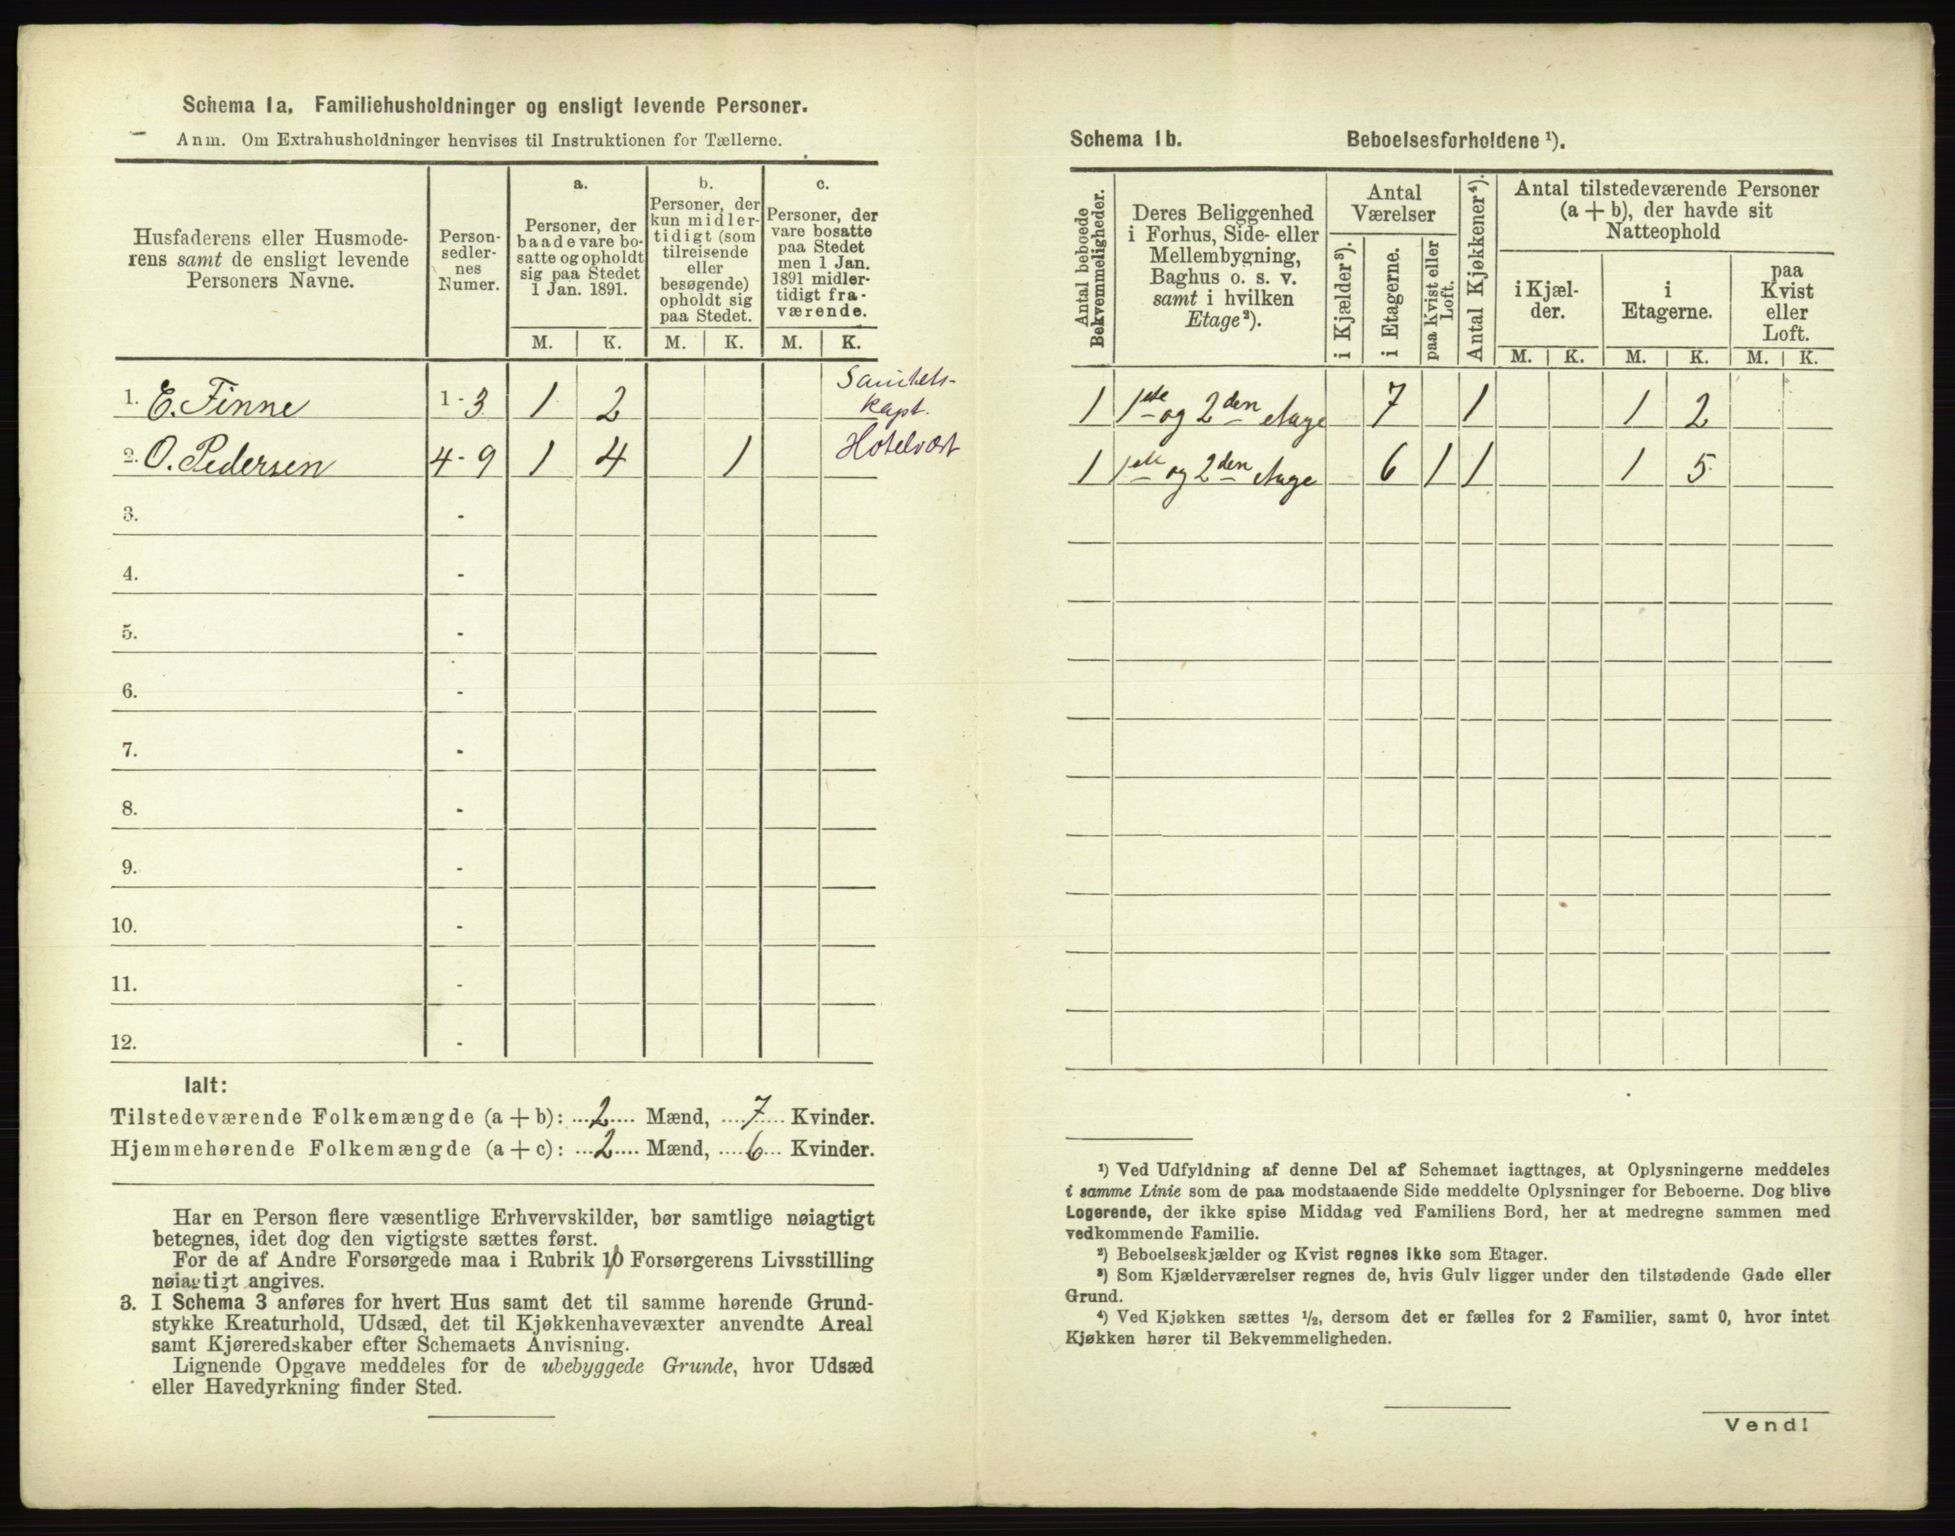 Schema 1a, Familiehusholdninger og ensligt levende Personer.
Anm. Om Extrahusholdninger henvises til Instruktionen for Tællerne.
Husfaderens eller Husmoderens samt de ensligt levende Personers Navne.
Personsedlernes Numer.
a. Personer, der baade vare bosatte og opholdt sig paa Stedet 1 Jan. 1891.
b. Personer, der kun midlertidigt (som tilreisende eller besøgende) opholdt sig paa Stedet.
c. Personer, der vare bosatte paa Stedet men 1 Jan. 1891 midlertidigt fraværende.
M. K. M. K. M. K.
1. E. Finne 1-3 1 2 Sanitets-
kapt.
2. O. Pedersen 4-9 1 4 1 Hotelvært
3. -
4. -
5. -
6. -
7. -
8. -
9. -
10. -
11. -
12. -
Ialt:
Tilstedeværende Folkemængde (a + b): 2 Mænd, 7 Kvinder.
Hjemmehørende Folkemængde (a + c): 2 Mænd, 6 Kvinder.
Har en Person flere væsentlige Erhvervskilder, bør samtlige nøiagtigt
betegnes, idet dog den vigtigste sættes først.
For de af Andre Forsørgede maa i Rubrik 10 Forsørgerens Livsstilling
nøiagtigt angives.
3. I Schema 3 anføres for hvert Hus samt det til samme hørende Grund-
stykke Kreaturhold, Udsæd, det til Kjøkkenhavevæxter anvendte Areal
samt Kjøreredskaber efter Schemaets Anvisning.
Lignende Opgave meddeles for de ubebyggede Grunde, hvor Udsæd
eller Havedyrkning finder Sted.
Schema 1b. Beboelsesforholdene ¹).
Antal beboede Bekvemmeligheder.
Deres Beliggenhed i Forhus, Side- eller Mellembygning, Baghus o. s. v. samt i hvilken Etage²).
Antal Værelser
i Kjælder³).
i Etagerne.
paa Kvist eller Loft.
Antal Kjøkkener⁴).
Antal tilstedeværende Personer (a + b), der havde sit Natteophold
i Kjælder.
i Etagerne.
paa Kvist eller Loft.
M. K. M. K. M. K.
1 1ste og 2den etage 7 1 1 2
1 1ste og 2den etage 6 1 1 1 5
¹) Ved Udfyldning af denne Del af Schemaet iagttages, at Oplysningerne meddeles
i samme Linie som de paa modstaaende Side meddelte Oplysninger for Beboerne. Dog blive
Logerende, der ikke spise Middag ved Familiens Bord, her at medregne sammen med
vedkommende Familie.
²) Beboelseskjælder og Kvist regnes ikke som Etager.
³) Som Kjælderværelser regnes de, hvis Gulv ligger under den tilstødende Gade eller
Grund.
⁴) Ved Kjøkken sættes ½, dersom det er fælles for 2 Familier, samt 0, hvor intet
Kjøkken hører til Bekvemmeligheden.
Vend!